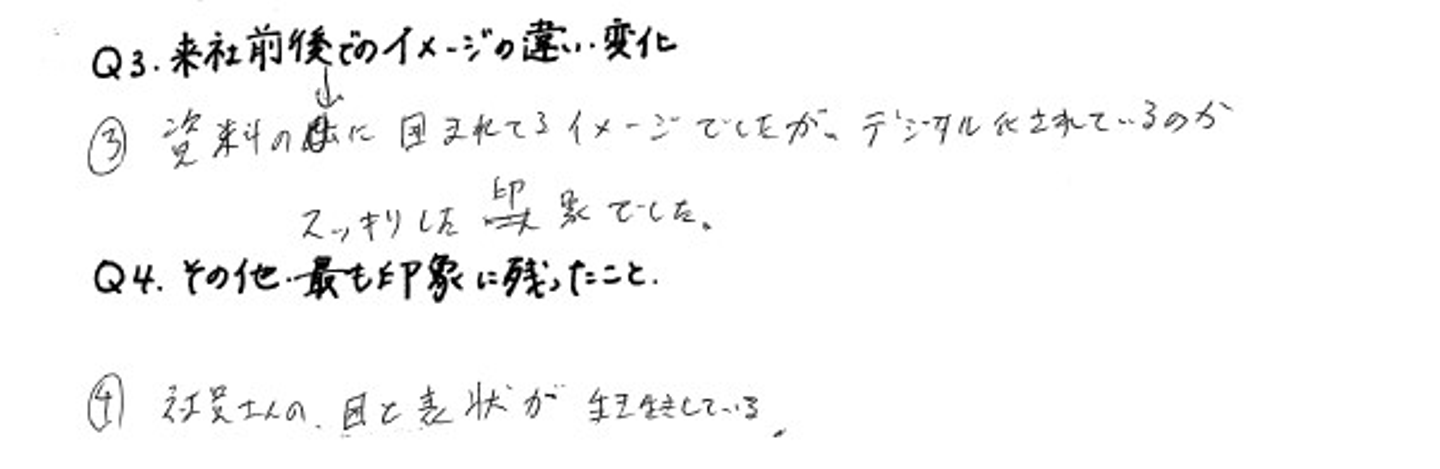 Q3. 来社前後でのイメージの違い・変化
③ 資料の山に囲まれてるイメージでしたが、デジタル化されているのか
スッキリした印象でした。
Q4. その他・最も印象に残ったこと.
④ 社員さんの、目と表状が生き生きしている。